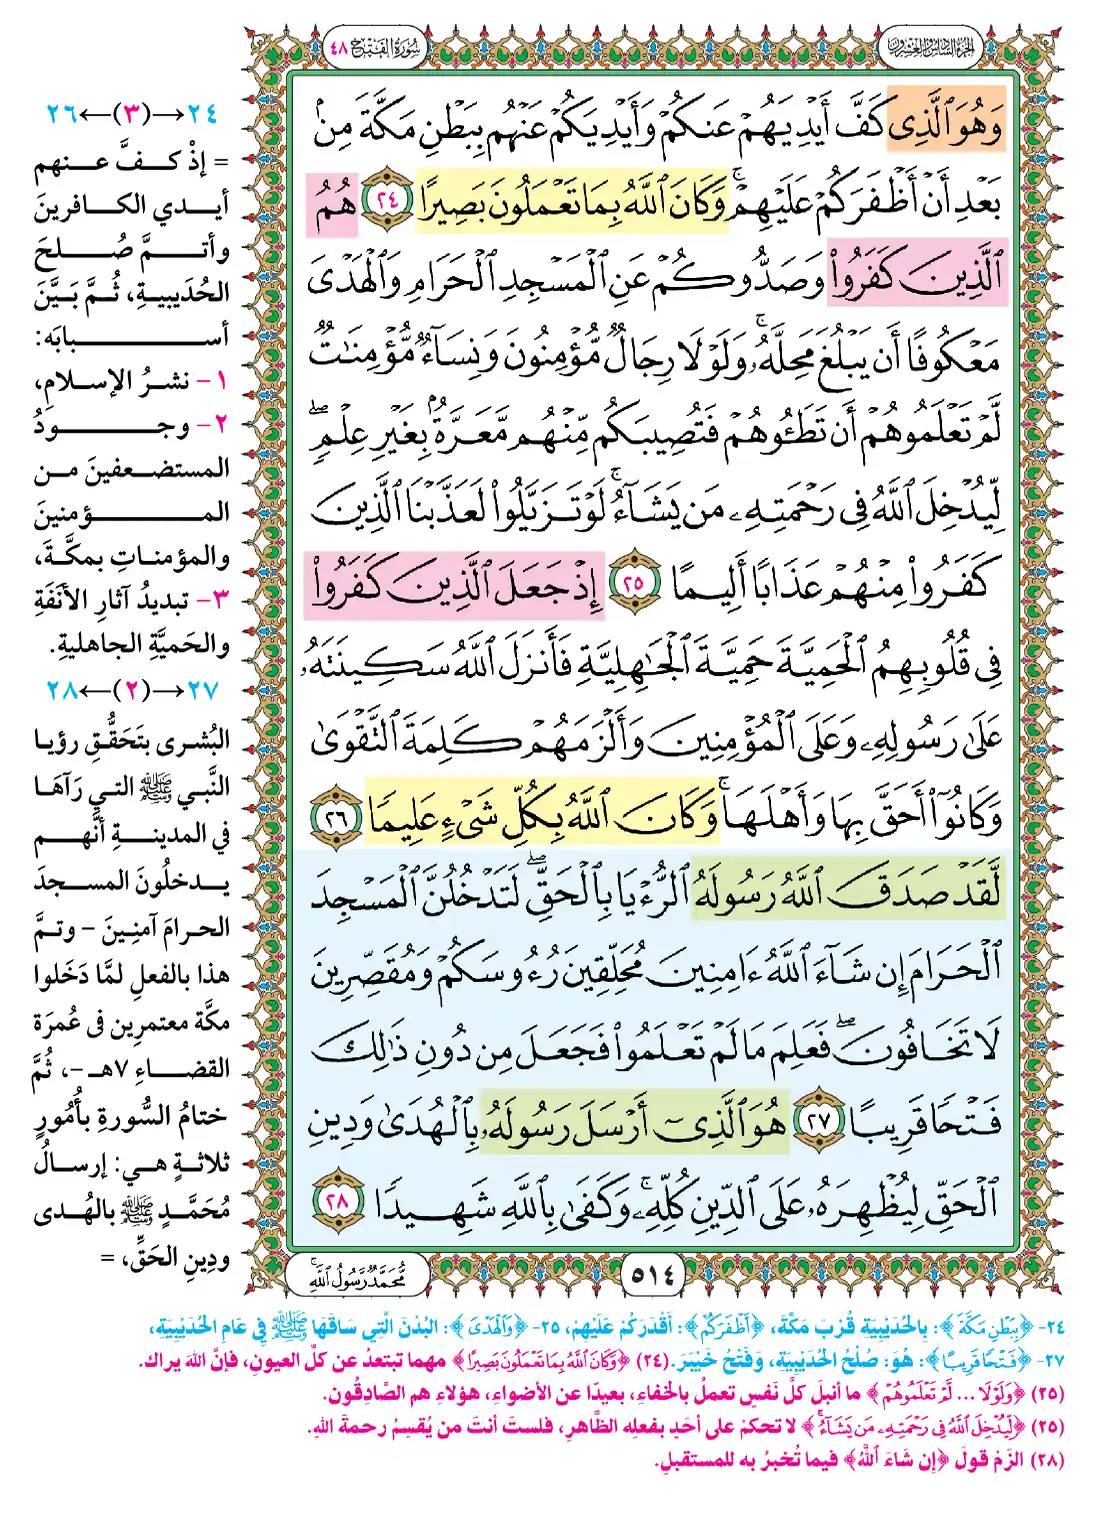 الجزء السادس والعشرون
سورة الفتح ٤٨
وَهُوَ ٱلَّذِى كَفَّ أَيْدِيَهُمْ عَنكُمْ وَأَيْدِيَكُمْ عَنْهُم بِبَطْنِ مَكَّةَ مِنۢ
بَعْدِ أَنْ أَظْفَرَكُمْ عَلَيْهِمْ ۚ وَكَانَ ٱللَّهُ بِمَا تَعْمَلُونَ بَصِيرًا ٢٤ هُمُ
ٱلَّذِينَ كَفَرُوا۟ وَصَدُّوكُمْ عَنِ ٱلْمَسْجِدِ ٱلْحَرَامِ وَٱلْهَدْىَ
مَعْكُوفًا أَن يَبْلُغَ مَحِلَّهُۥ ۚ وَلَوْلَا رِجَالٌ مُّؤْمِنُونَ وَنِسَآءٌ مُّؤْمِنَـٰتٌ
لَّمْ تَعْلَمُوهُمْ أَن تَطَـُٔوهُمْ فَتُصِيبَكُم مِّنْهُم مَّعَرَّةٌۢ بِغَيْرِ عِلْمٍ ۖ
لِّيُدْخِلَ ٱللَّهُ فِى رَحْمَتِهِۦ مَن يَشَآءُ ۚ لَوْ تَزَيَّلُوا۟ لَعَذَّبْنَا ٱلَّذِينَ
كَفَرُوا۟ مِنْهُمْ عَذَابًا أَلِيمًا ٢٥ إِذْ جَعَلَ ٱلَّذِينَ كَفَرُوا۟
فِى قُلُوبِهِمُ ٱلْحَمِيَّةَ حَمِيَّةَ ٱلْجَـٰهِلِيَّةِ فَأَنزَلَ ٱللَّهُ سَكِينَتَهُۥ
عَلَىٰ رَسُولِهِۦ وَعَلَى ٱلْمُؤْمِنِينَ وَأَلْزَمَهُمْ كَلِمَةَ ٱلتَّقْوَىٰ
وَكَانُوٓا۟ أَحَقَّ بِهَا وَأَهْلَهَا ۚ وَكَانَ ٱللَّهُ بِكُلِّ شَىْءٍ عَلِيمًا ٢٦
لَّقَدْ صَدَقَ ٱللَّهُ رَسُولَهُ ٱلرُّءْيَا بِٱلْحَقِّ ۖ لَتَدْخُلُنَّ ٱلْمَسْجِدَ
ٱلْحَرَامَ إِن شَآءَ ٱللَّهُ ءَامِنِينَ مُحَلِّقِينَ رُءُوسَكُمْ وَمُقَصِّرِينَ
لَا تَخَافُونَ ۖ فَعَلِمَ مَا لَمْ تَعْلَمُوا۟ فَجَعَلَ مِن دُونِ ذَٰلِكَ
فَتْحًا قَرِيبًا ٢٧ هُوَ ٱلَّذِىٓ أَرْسَلَ رَسُولَهُۥ بِٱلْهُدَىٰ وَدِينِ
ٱلْحَقِّ لِيُظْهِرَهُۥ عَلَى ٱلدِّينِ كُلِّهِۦ ۚ وَكَفَىٰ بِٱللَّهِ شَهِيدًا ٢٨
٥١٤
مُّحَمَّدٌ رَّسُولُ ٱللَّهِ ۚ
٢٤→(٣)←٢٦
= إذْ كفَّ عنهم
أيدي الكافرينَ
وأتمَّ صُلحَ
الحُدَيبيةِ، ثُمَّ بَيَّنَ
أسبابَه:
١- نشرُ الإسلامِ،
٢- وجودُ
المستضعفينَ من
المؤمنينَ
والمؤمناتِ بمكَّةَ،
٣- تبديدُ آثارِ الأَنَفَةِ
والحَميَّةِ الجاهليةِ.
٢٧→(٢)←٢٨
البُشرى بتَحَقُّقِ رؤيا
النَّبي ﷺ التي رَآهَا
في المدينةِ أنَّهم
يدخلُونَ المسجدَ
الحرامَ آمنِينَ - وتمَّ
هذا بالفعلِ لمَّا دَخَلوا
مكَّة معتمرِين في عُمرَة
القضاءِ ٧هـ -، ثُمَّ
ختامُ السُّورةِ بأُمُورٍ
ثلاثةٍ هي: إرسالُ
مُحَمَّدٍ ﷺ بالهُدى
ودِينِ الحَقِّ، =
٢٤- ﴿بِبَطْنِ مَكَّةَ﴾: بِالحُدَيْبِيَةِ قُرْبَ مَكَّةَ، ﴿أَظْفَرَكُمْ﴾: أَقْدَرَكُمْ عَلَيْهِمْ، ٢٥- ﴿وَٱلْهَدْىَ﴾: البُدْنَ الَّتِي سَاقَهَا ﷺ فِي عَامِ الحُدَيْبِيَةِ،
٢٧- ﴿فَتْحًا قَرِيبًا﴾: هُوَ: صُلْحُ الحُدَيْبِيَةِ، وَفَتْحُ خَيْبَرَ. (٢٤) ﴿وَكَانَ ٱللَّهُ بِمَا تَعْمَلُونَ بَصِيرًا﴾ مهما تبتعدُ عن كلِّ العيونِ، فإنَّ اللهَ يراك.
(٢٥) ﴿وَلَوْلَا ... لَّمْ تَعْلَمُوهُمْ﴾ ما أنبلَ كلَّ نفسٍ تعملُ بالخفاءِ، بعيدًا عن الأضواءِ، هؤلاءِ هم الصَّادِقُون.
(٢٥) ﴿لِّيُدْخِلَ ٱللَّهُ فِى رَحْمَتِهِۦ مَن يَشَآءُ ۚ﴾ لا تحكمْ على أحَدٍ بفعلِه الظَّاهرِ، فلستَ أنتَ من يُقسِمُ رحمةَ اللهِ.
(٢٨) الزَمْ قولَ ﴿إِن شَآءَ ٱللَّهُ﴾ فيما تُخبرُ به للمستقبلِ.